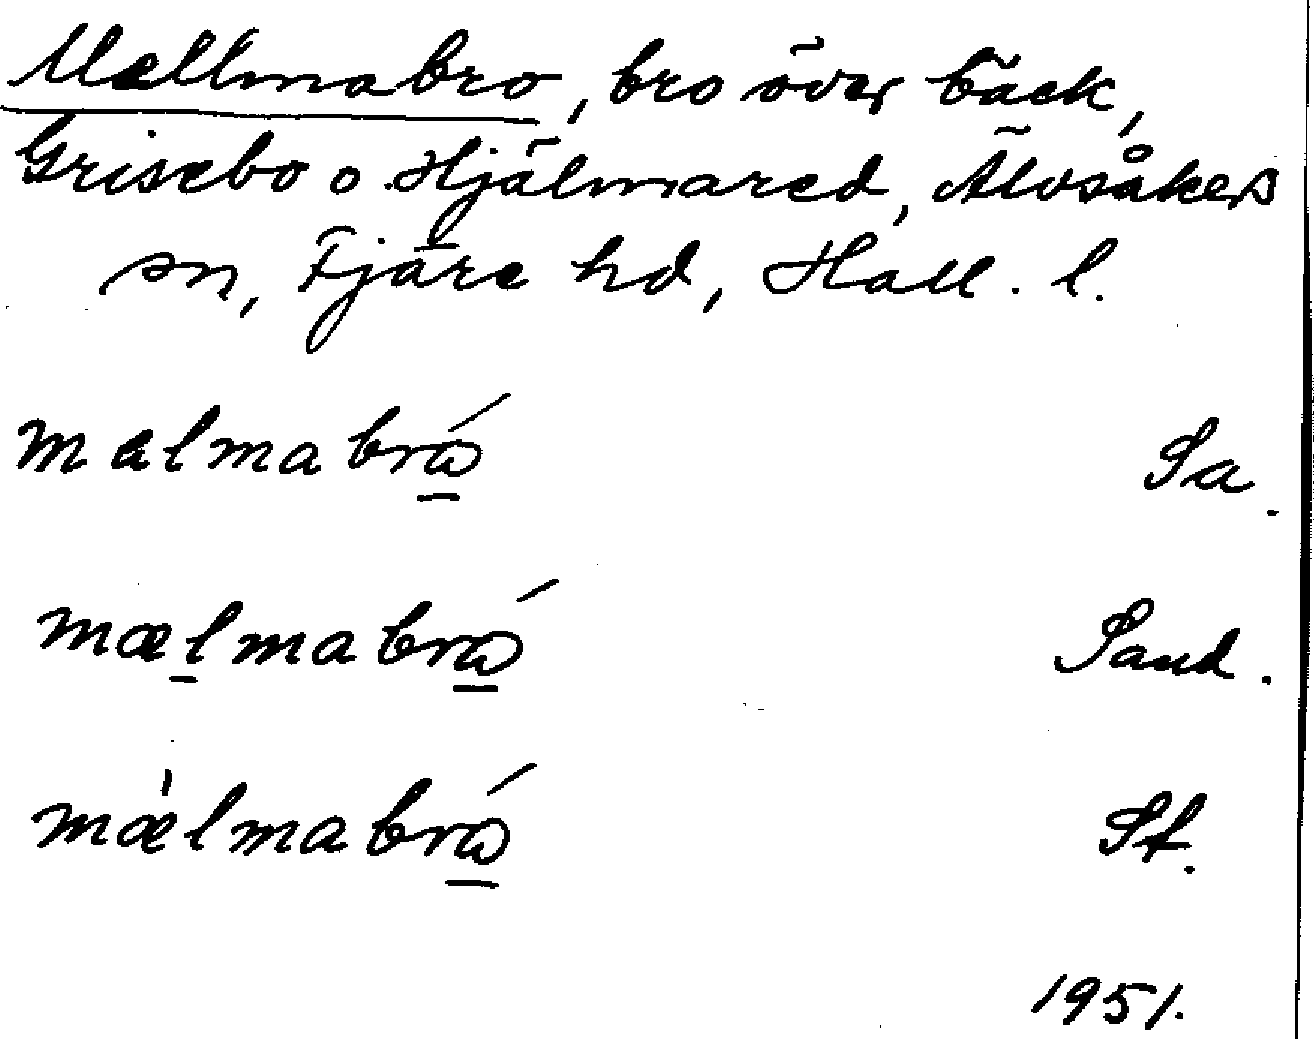 Mellmabro, bro över bäck,
Grisebo o Hjälmared, Älvsåkers
sn, Fjäre hd, Hall. l.
mælmabrå Sa.
mælmabrå Sand.
mælmabrå St.
1951.